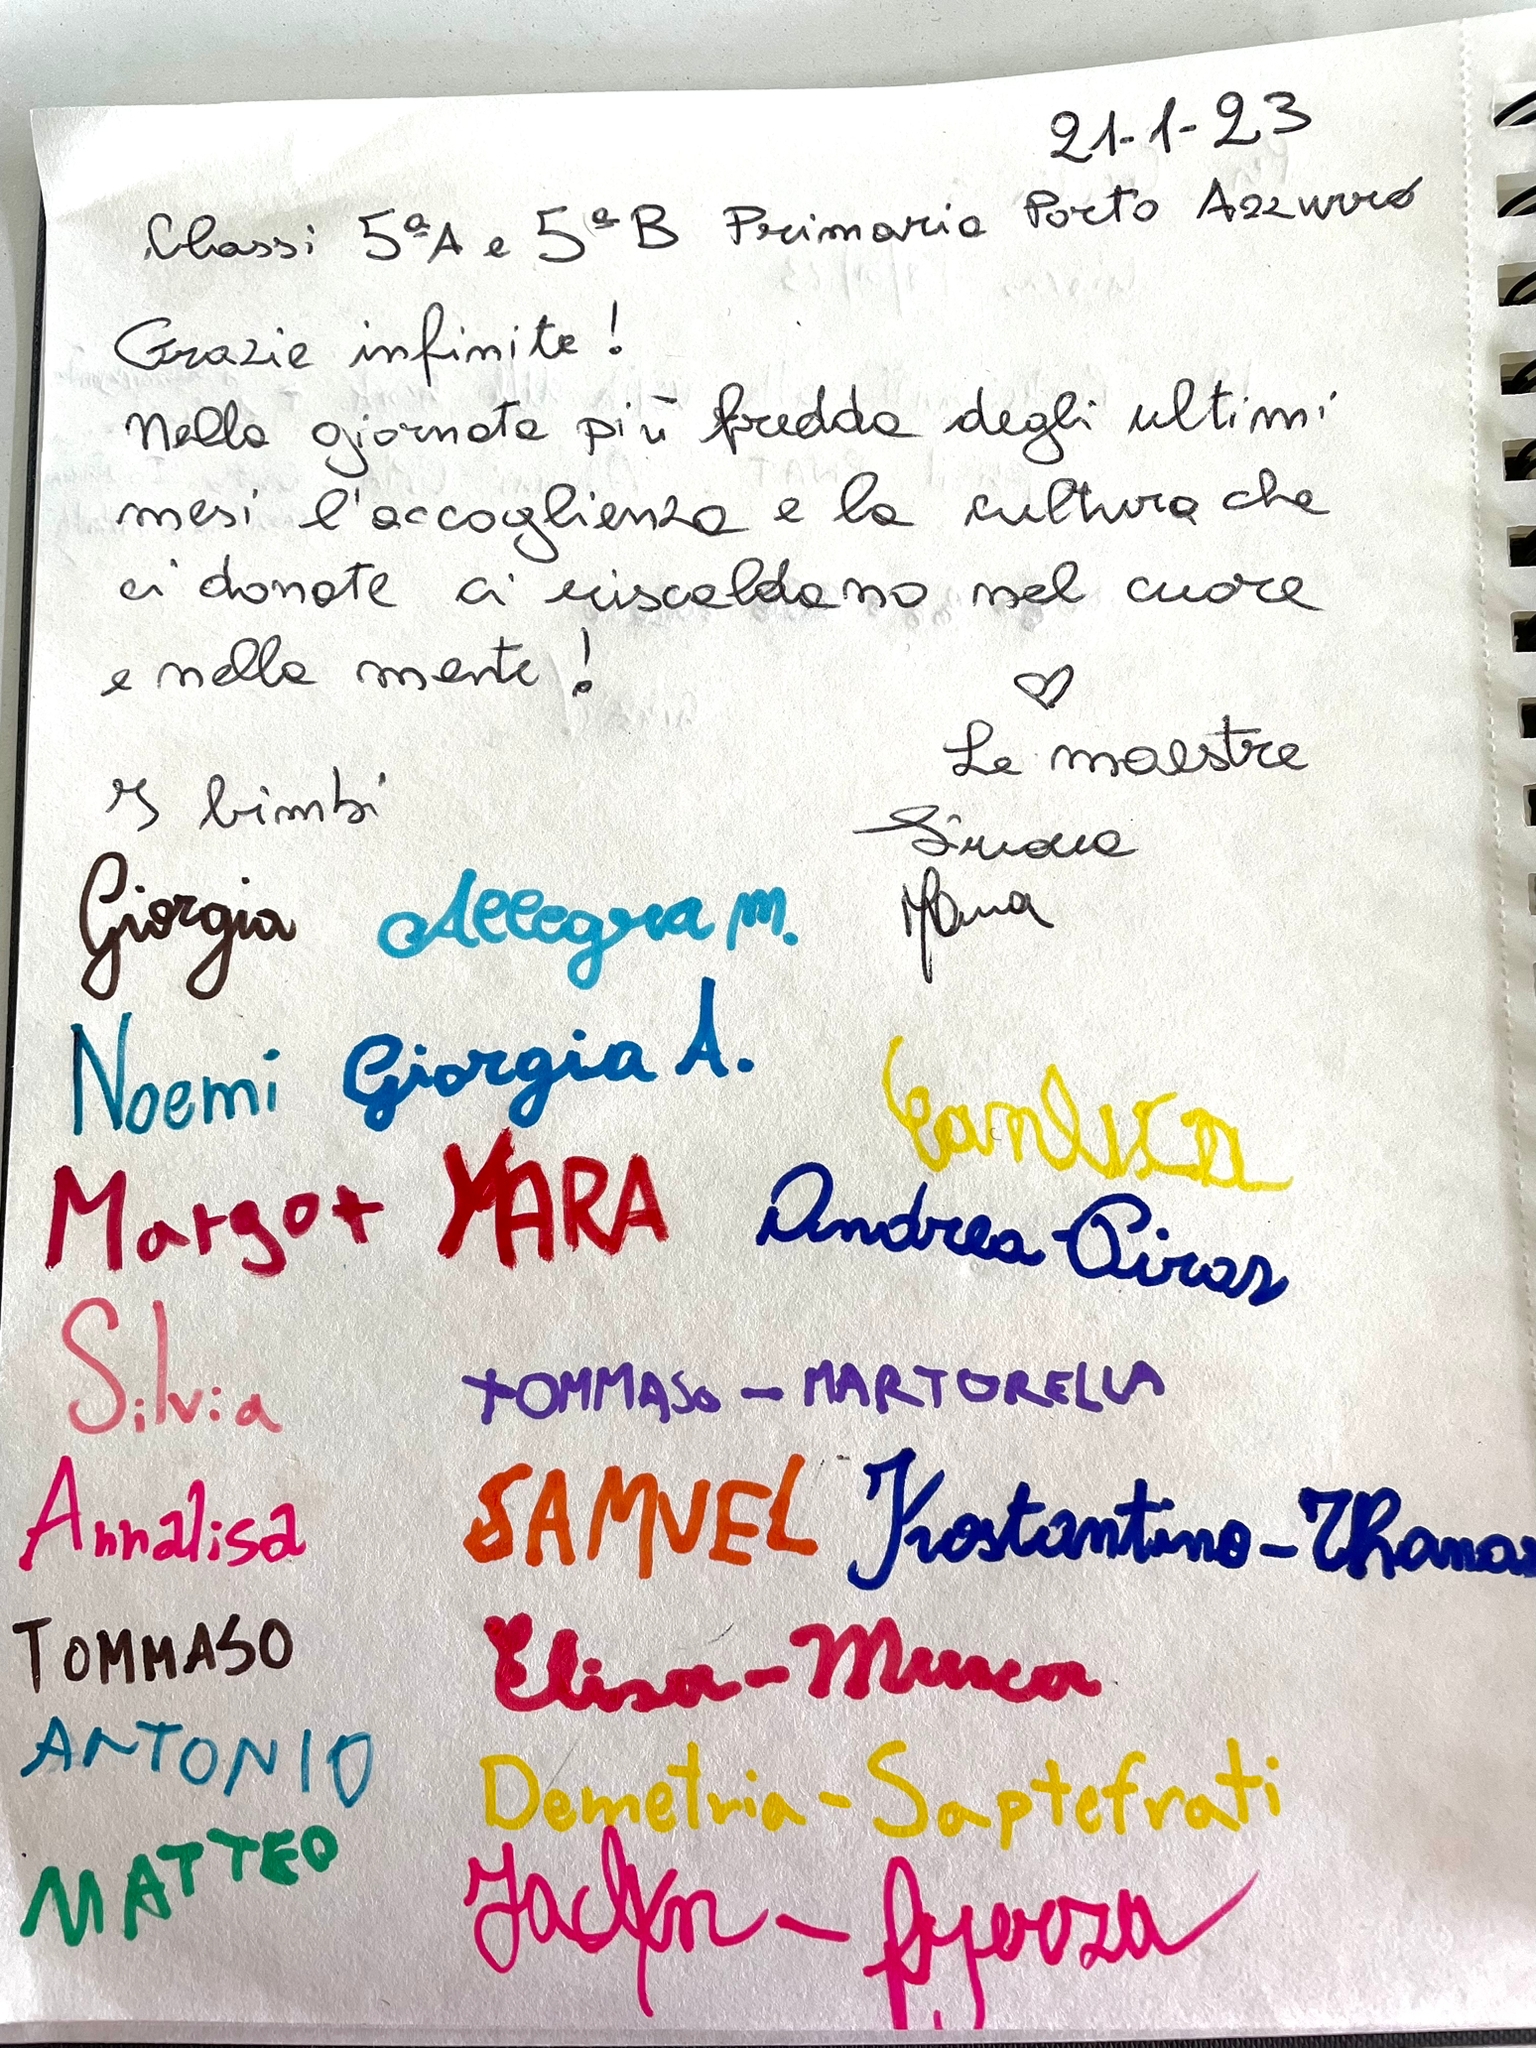 21-1-23
Classi 5ªA e 5ªB Primaria Porto Azzurro
Grazie infinite!
Nella giornata più fredda degli ultimi
mesi l'accoglienza e la cultura che
ci donate ci riscaldano nel cuore
e nella mente!
Le maestre
I bimbi
Giorgia Allegra M.
Noemi Giorgia A.
Margot YARA Andrea-Piras
Silvia TOMMASO-MARTORELLA
Annalisa SAMUEL Kostantino-Thanas
TOMMASO Elisa-Murca
ANTONIO Demetria-Saptefrati
MATTEO Jaclyn-